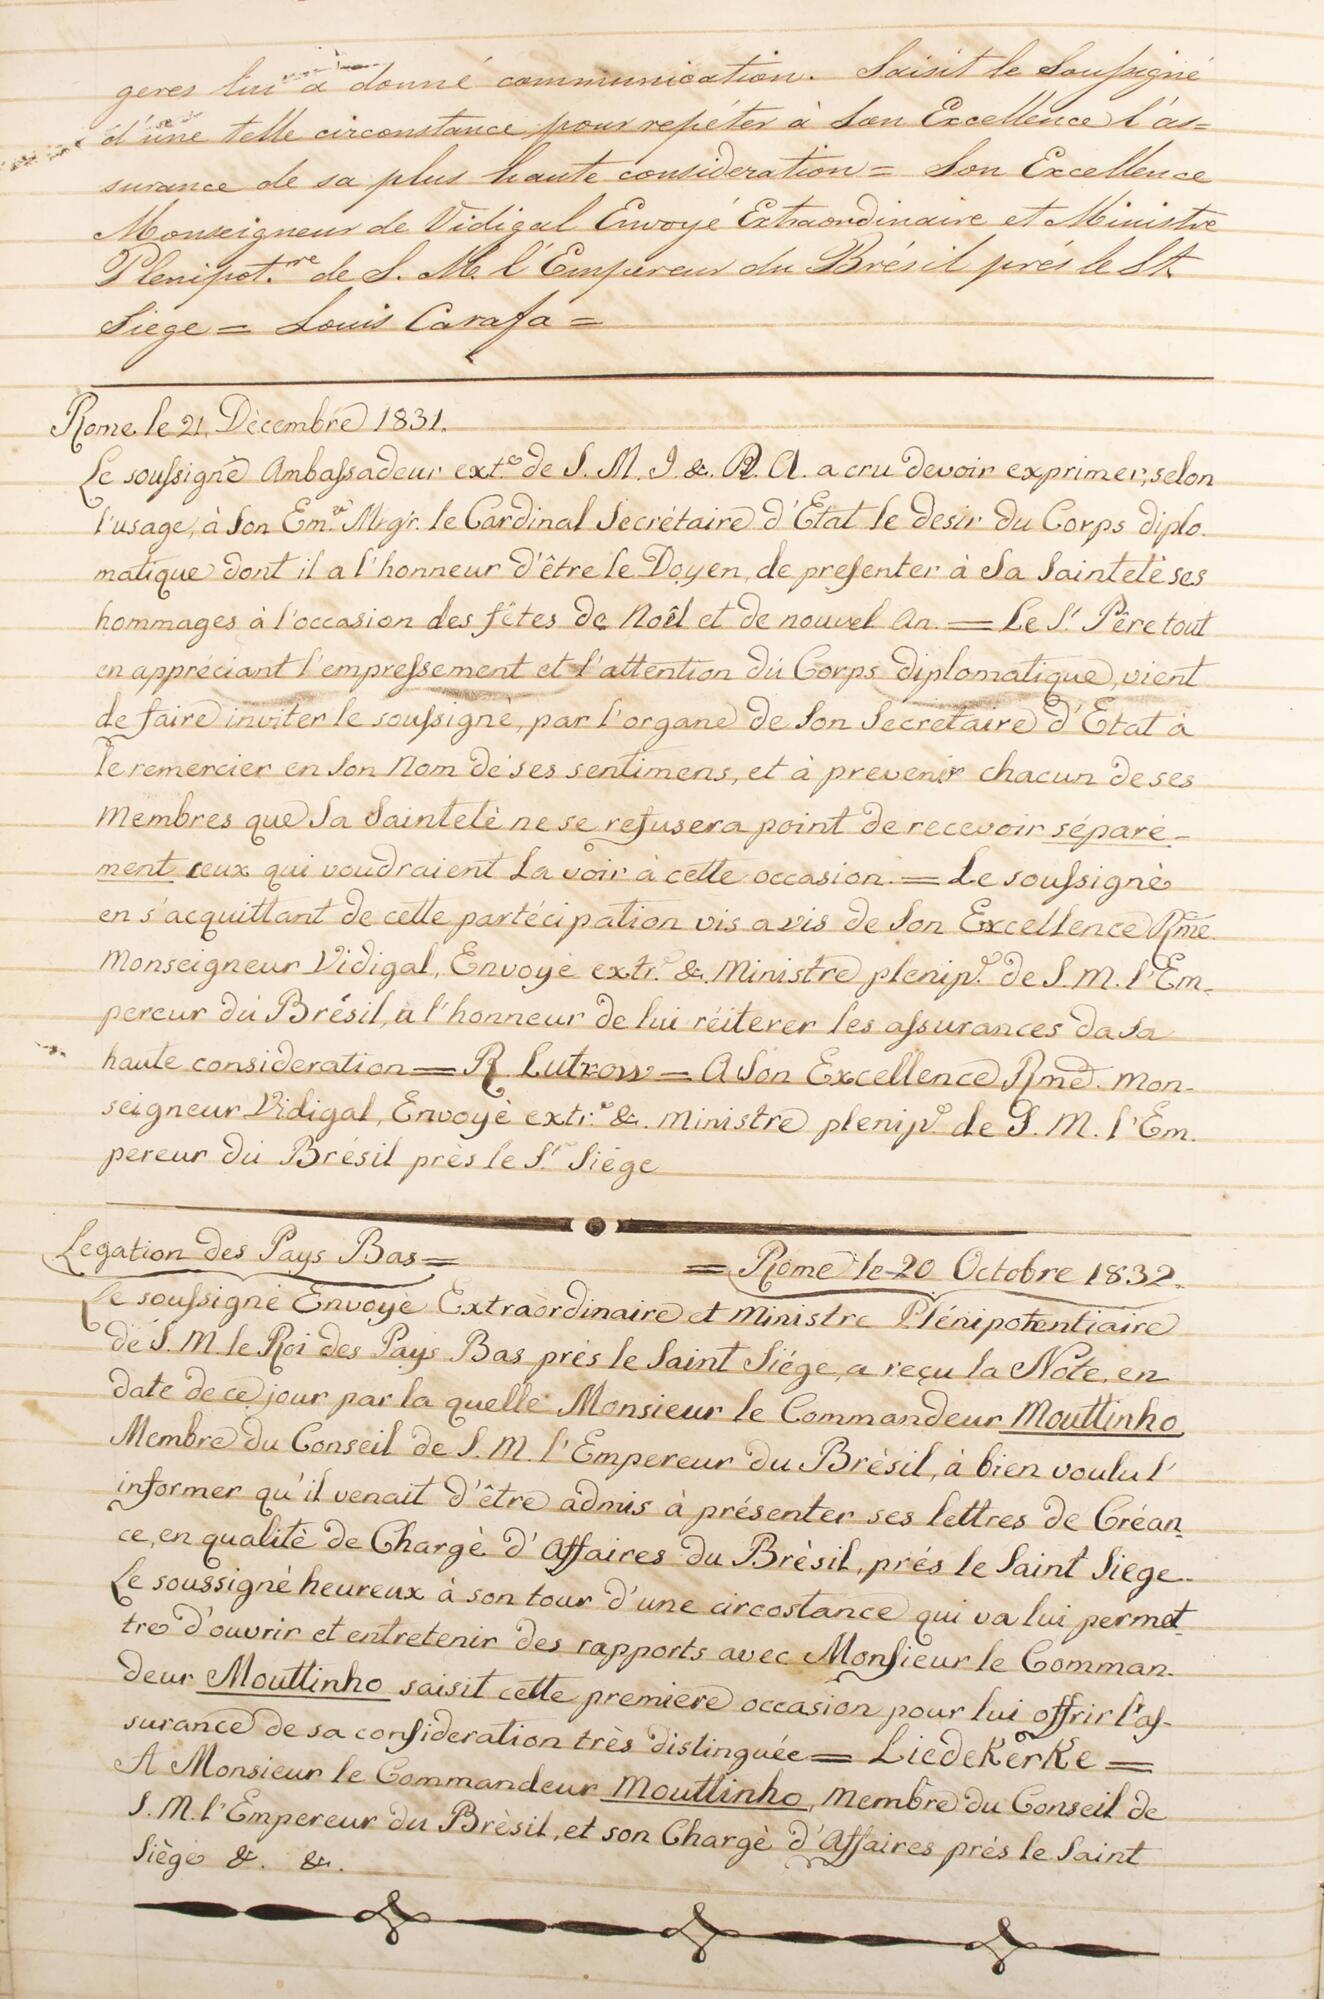 geres lui a donné communication. Saisit le Soussigné
d'une telle circonstance pour repéter à Son Excellence l'as=
surance de sa plus haute consideration = Son Excellence
Monseigneur de Vidigal Envoyé Extraordinaire et Ministre
Plenipot.re de S. M. l'Empereur du Brésil prés le St.
Siege = Louis Carafa =
Rome le 21. Dècembre 1831.
Le soussignè Ambassadeur ext.e de S. M. I. & R. A. a cru devoir exprimer, selon
l'usage, à Son Em.ce Mrgr. le Cardinal Secrétaire d'Etat le desir du Corps diplo.
matique dont il a l'honneur d'être le Doyen, de presenter à Sa Saintetè ses
hommages à l'occasion des fêtes de Noêl et de nouvel An. = Le S.t Père tout
en appréciant l'empressement et l'attention du Corps diplomatique, vient
de faire inviter le soussignè, par l'organe de Son Secretaire d'Etat à
le remercier en Son Nom de ses sentimens, et à prevenir chacun de ses
Membres que Sa Saintetè ne se refusera point de recevoir séparé-
ment ceux qui voudraient La voir à cette occasion. = Le soussignè
en s'acquittant de cette partécipation vis a vis de Son Excellence Rme.
Monseigneur Vidigal, Envoyè extr.e & Ministre plenip.e de S. M. l'Em-
pereur du Brésil, a l'honneur de lui réiterer les assurances da sa
haute consideration = R. Lutzow = A Son Excellence Rme. Mon-
seigneur Vidigal, Envoyè extr.e &. Ministre plenip.e de S. M. l'Em.
pereur du Brésil près le S.t Siège
Legation des Pays Bas = = Rome le 20 Octobre 1832.
Le soussigné Envoyè Extraordinaire et Ministre Plénipotentiaire
de S. M. le Roi des Pays Bas prés le Saint Siége, a reçu la Note, en
date de ce jour par la quelle Monsieur le Commandeur Mouttinho,
Membre du Conseil de S. M. l'Empereur du Brèsil, à bien voulu l'
informer qu'il venait d'être admis à présenter ses lettres de Créan-
ce, en qualitè de Chargè d'Affaires du Brèsil, prés le Saint Siege..
Le soussigné heureux à son tour d'une circostance qui va lui permet-
tre d'ouvrir et entretenir des rapports avec Monsieur le Comman-
deur Mouttinho saisit cette premiere occasion pour lui offrir l'as-
surance de sa consideration très distinguée = LiedeKerKe =
A Monsieur le Commandeur Mouttinho, Membre du Conseil de
S. M. l'Empereur du Brèsil, et son Chargè d'Affaires prés le Saint
Siège &. &.